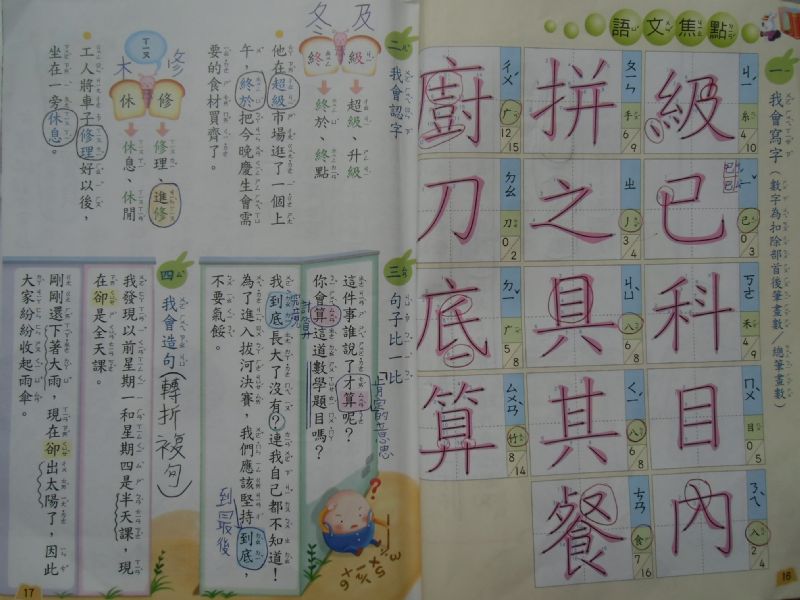 語文焦點
一 我會寫字(數字為扣除部首後筆畫數/總筆畫數)
級 ㄐㄧˊ 糸 4/10
已 ㄧˇ 己 0/3
科 ㄎㄜ 禾 4/9
目 ㄇㄨˋ 目 0/5
內 ㄋㄟˋ 入 2/4
拼 ㄆㄧㄣ 手 6/9
之 ㄓ 丿 3/4
具 ㄐㄩˋ 八 6/8
其 ㄑㄧˊ 八 6/8
餐 ㄘㄢ 食 7/16
廚 ㄔㄨˊ 广 12/15
刀 ㄉㄠ 刀 0/2
底 ㄉㄧˇ 广 5/8
算 ㄙㄨㄢˋ 竹 8/14
16
二 我會認字
及
級 超級、升級
冬
終 終於、終點
他在超級市場逛了一個上
午,終於把今晚慶生會需
要的食材買齊了。
修
修 修理、進修
木
ㄒㄧㄡ
休 休息、休閒
工人將車子修理好以後,
坐在一旁休息。
三 句子比一比
這件事誰說了才算呢?
肯定的意思
你會算這道數學題目嗎?
計算
我到底長大了沒有?連我自己都不知道!
究竟
為了進入拔河決賽,我們應該堅持到底,
到最後
不要氣餒。
四 我會造句(轉折複句)
我發現以前星期一和星期四是半天課,現
在卻是全天課。
剛剛還下著大雨,現在卻出太陽了,因此
大家紛紛收起雨傘。
17